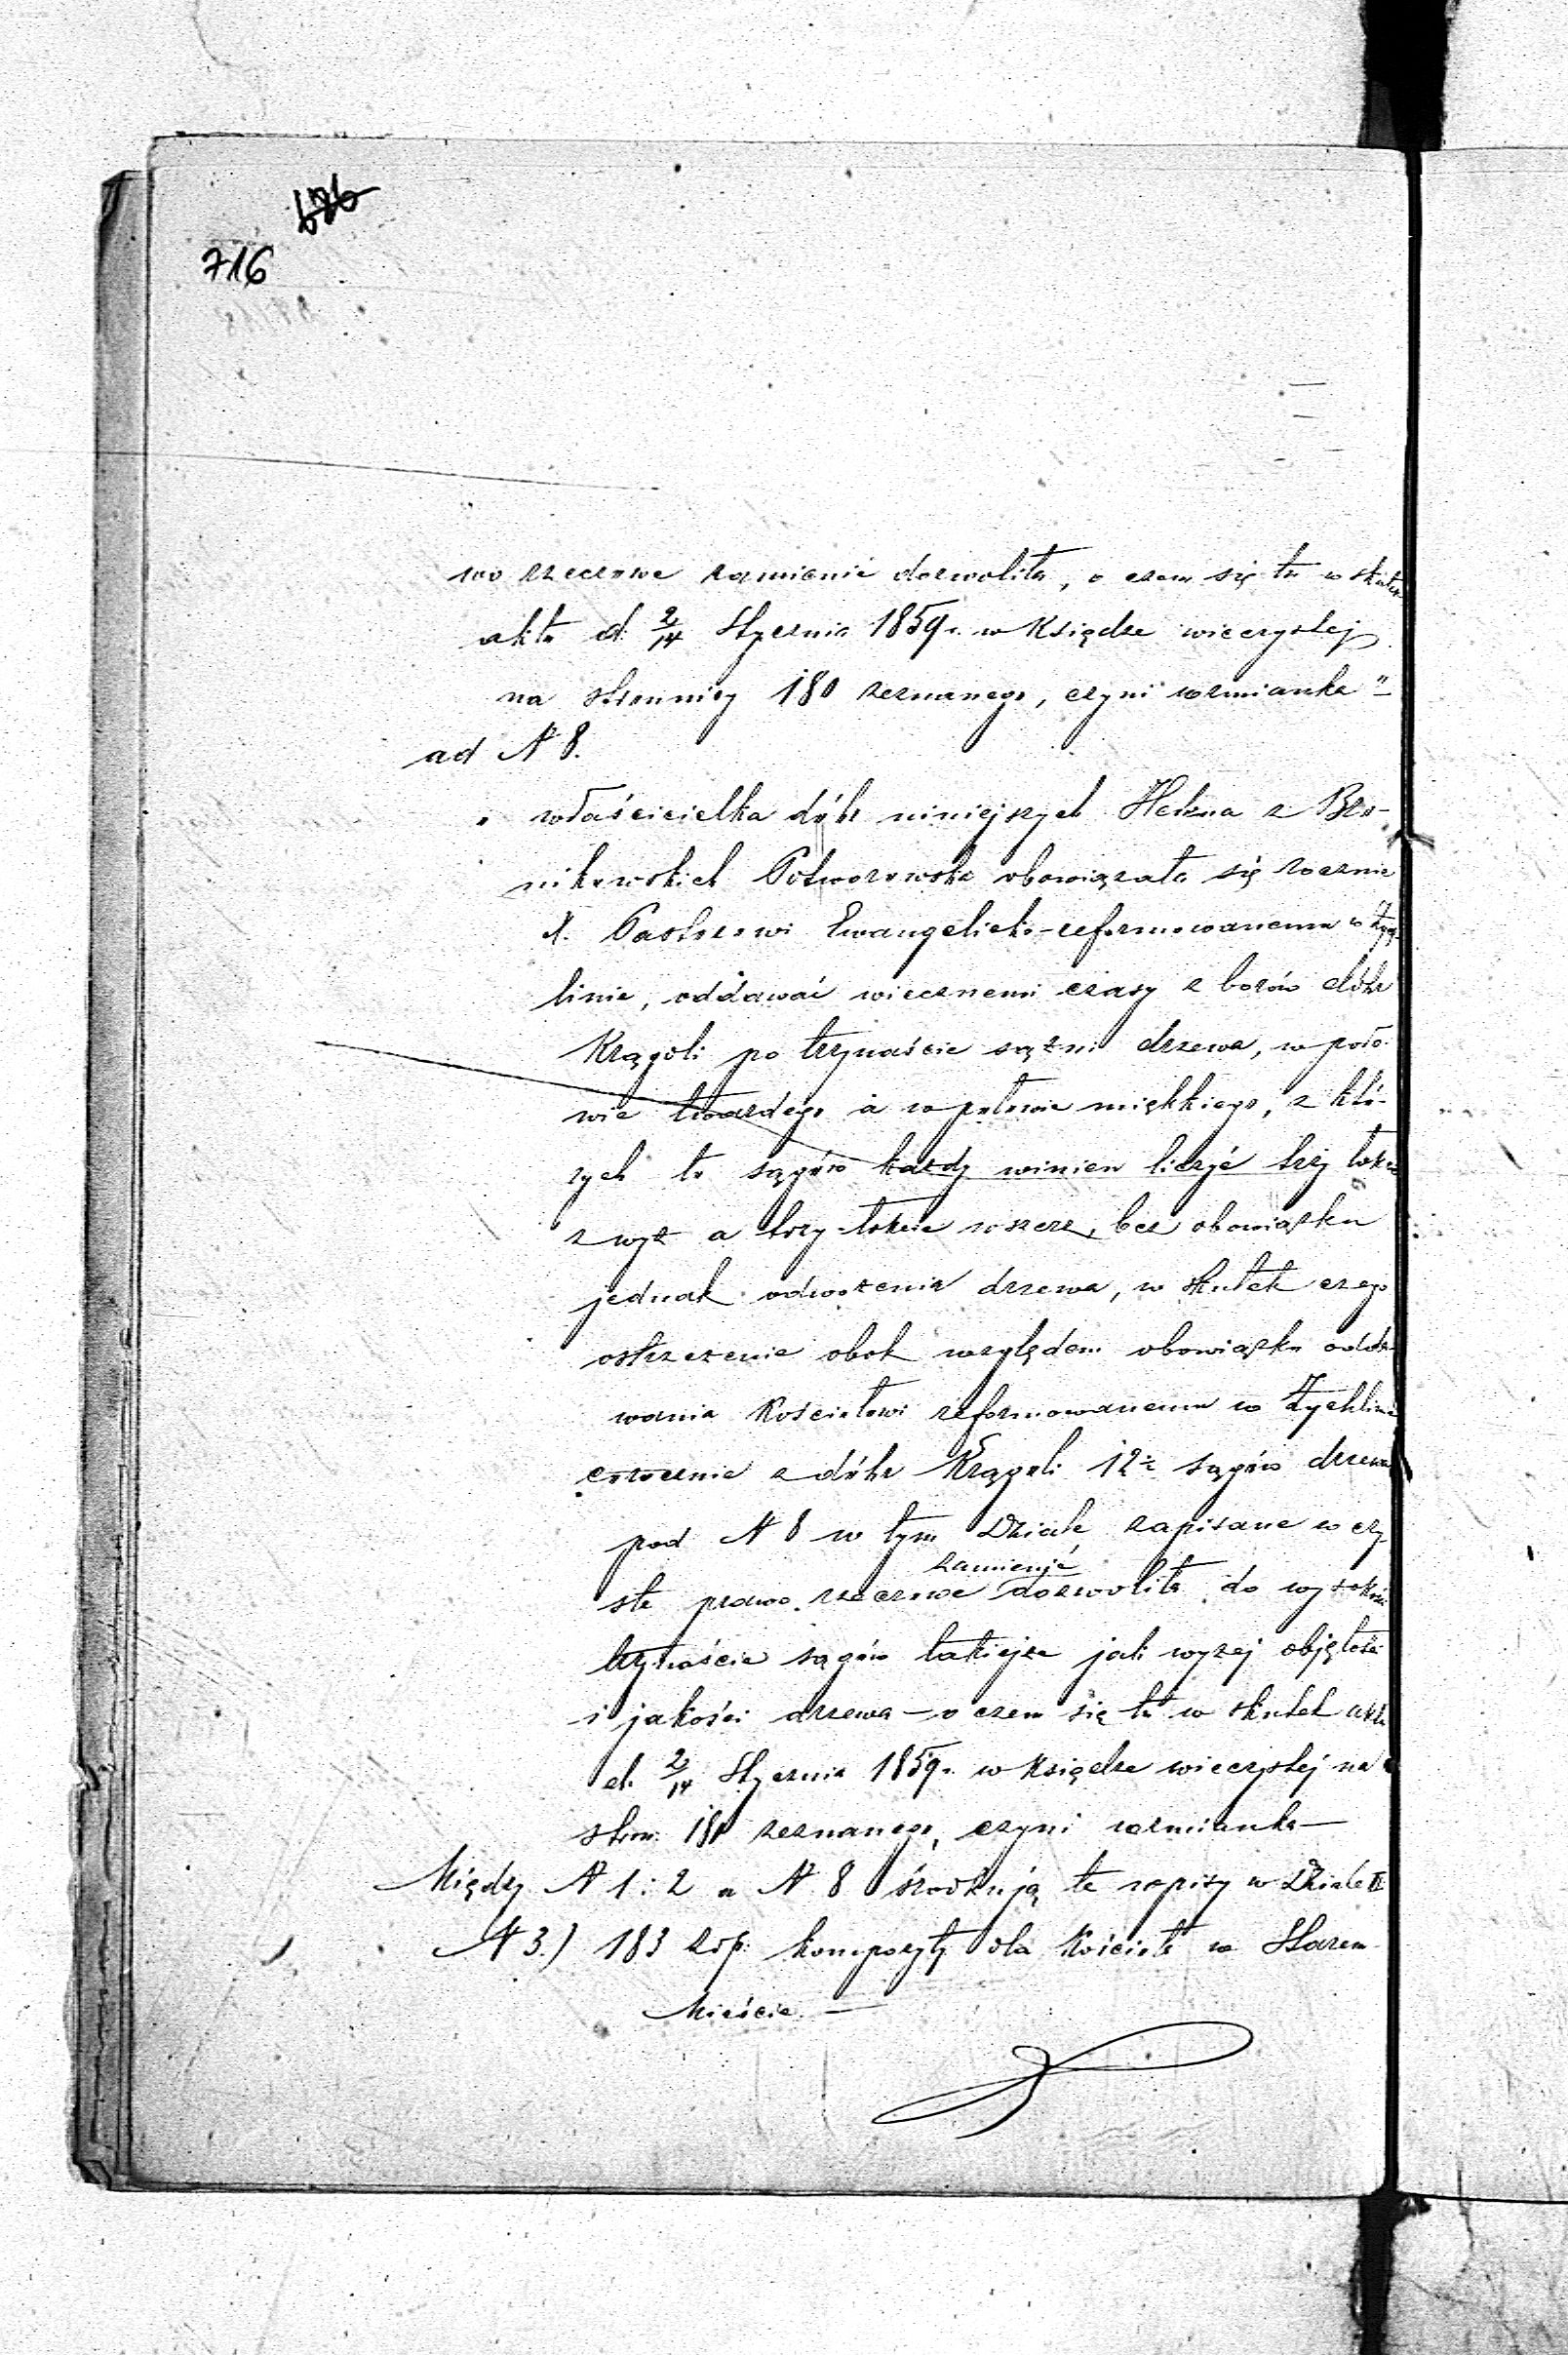 676
716
wo rzeczowe zamienić dozwoliła, o czem się tu w skutek
aktu d. 2/14 Stycznia 1859 r. w Księdze wieczystej
na stronnicy 180 zeznanego, czyni wzmianka"
ad N 8.
„ właścicielka dóbr niniejszych Helena z Bro-
nikowskich Potworowska obowiązała się rocznie
X. Pastorowi Ewangelicko-reformowanemu w Żych-
linie, oddawać wiecznemi czasy z borów dóbr
Krągoli po trzynaście sążni drzewa, w poło-
wie twardego a w połowie miękkiego, z któ-
rych to sągów każdy winien liczyć trzy łokcie
zwyż a trzy łokcie wszerz, bez obowiązku
jednak odwożenia drzewa, w skutek czego
ostrzeżenie obok względem obowiązku odda-
wania Kościołowi reformowanemu w Żychlinie
corocznie z dóbr Krągoli 12 sągów drzewa
pod N 8 w tym Dziale zapisane w czy-
zamienić
ste prawo rzeczowe dozwoliła do wysokości
trzynaście sągów takiejże jak wyżej objętości
i jakości drzewa – o czem się tu w skutek aktu
d. 2/14 Stycznia 1859 r. w Księdze wieczystej na
stron: 180 zeznanego, czyni wzmianka —
Między N 1 i 2 a N 8 środkują te wpisy w Dziale III
N 3.) 183 złp. kompozyty dla Kościoła w Starem
Mieście. —